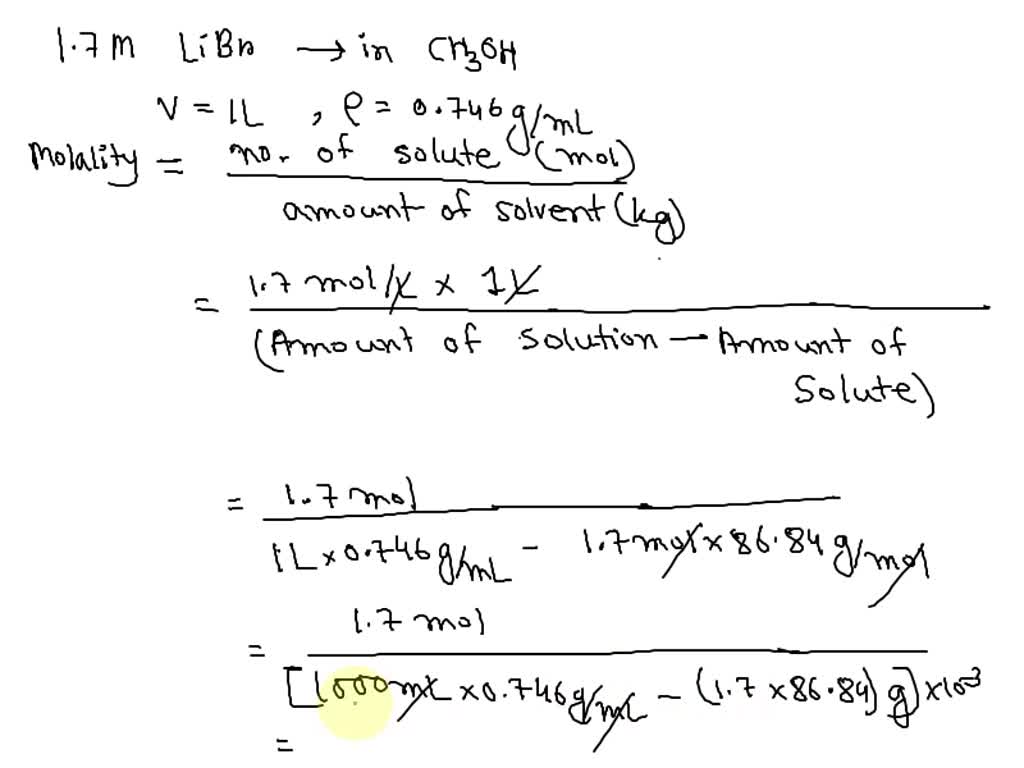 1.7 M LiBr → in CH3OH
V = 1L , ρ = 0.746 g/mL
Molality = no. of solute (mol)
amount of solvent (kg)
= 1.7 mol/L x 1L
(Amount of solution — Amount of
Solute)
= 1.7 mol
1L x 0.746 g/mL - 1.7 mol x 86.84 g/mol
1.7 mol
=
[1000 mL x 0.746 g/mL - (1.7 x 86.84) g] x 10-3
=